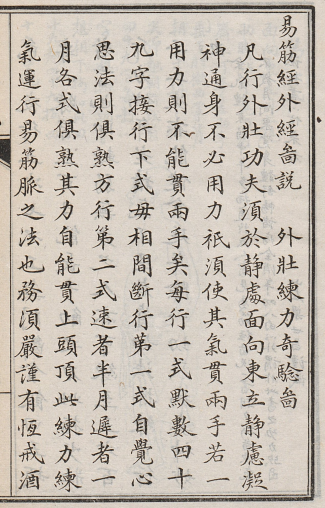 易筋經外經啚説　外壯練力奇驗啚
凡行外壯功夫須於靜處面向東立靜慮凝
神通身不必用力祇須使其氣貫兩手若一
用力則不能貫兩手矣每行一式默數四十
九字接行下式毋相間斷行第一式自覺心
思法則俱熟方行第二式速者半月遲者一
月各式俱熟其力自能貫上頭頂此練力練
氣運行易筋脈之法也務須嚴謹有恆戒酒